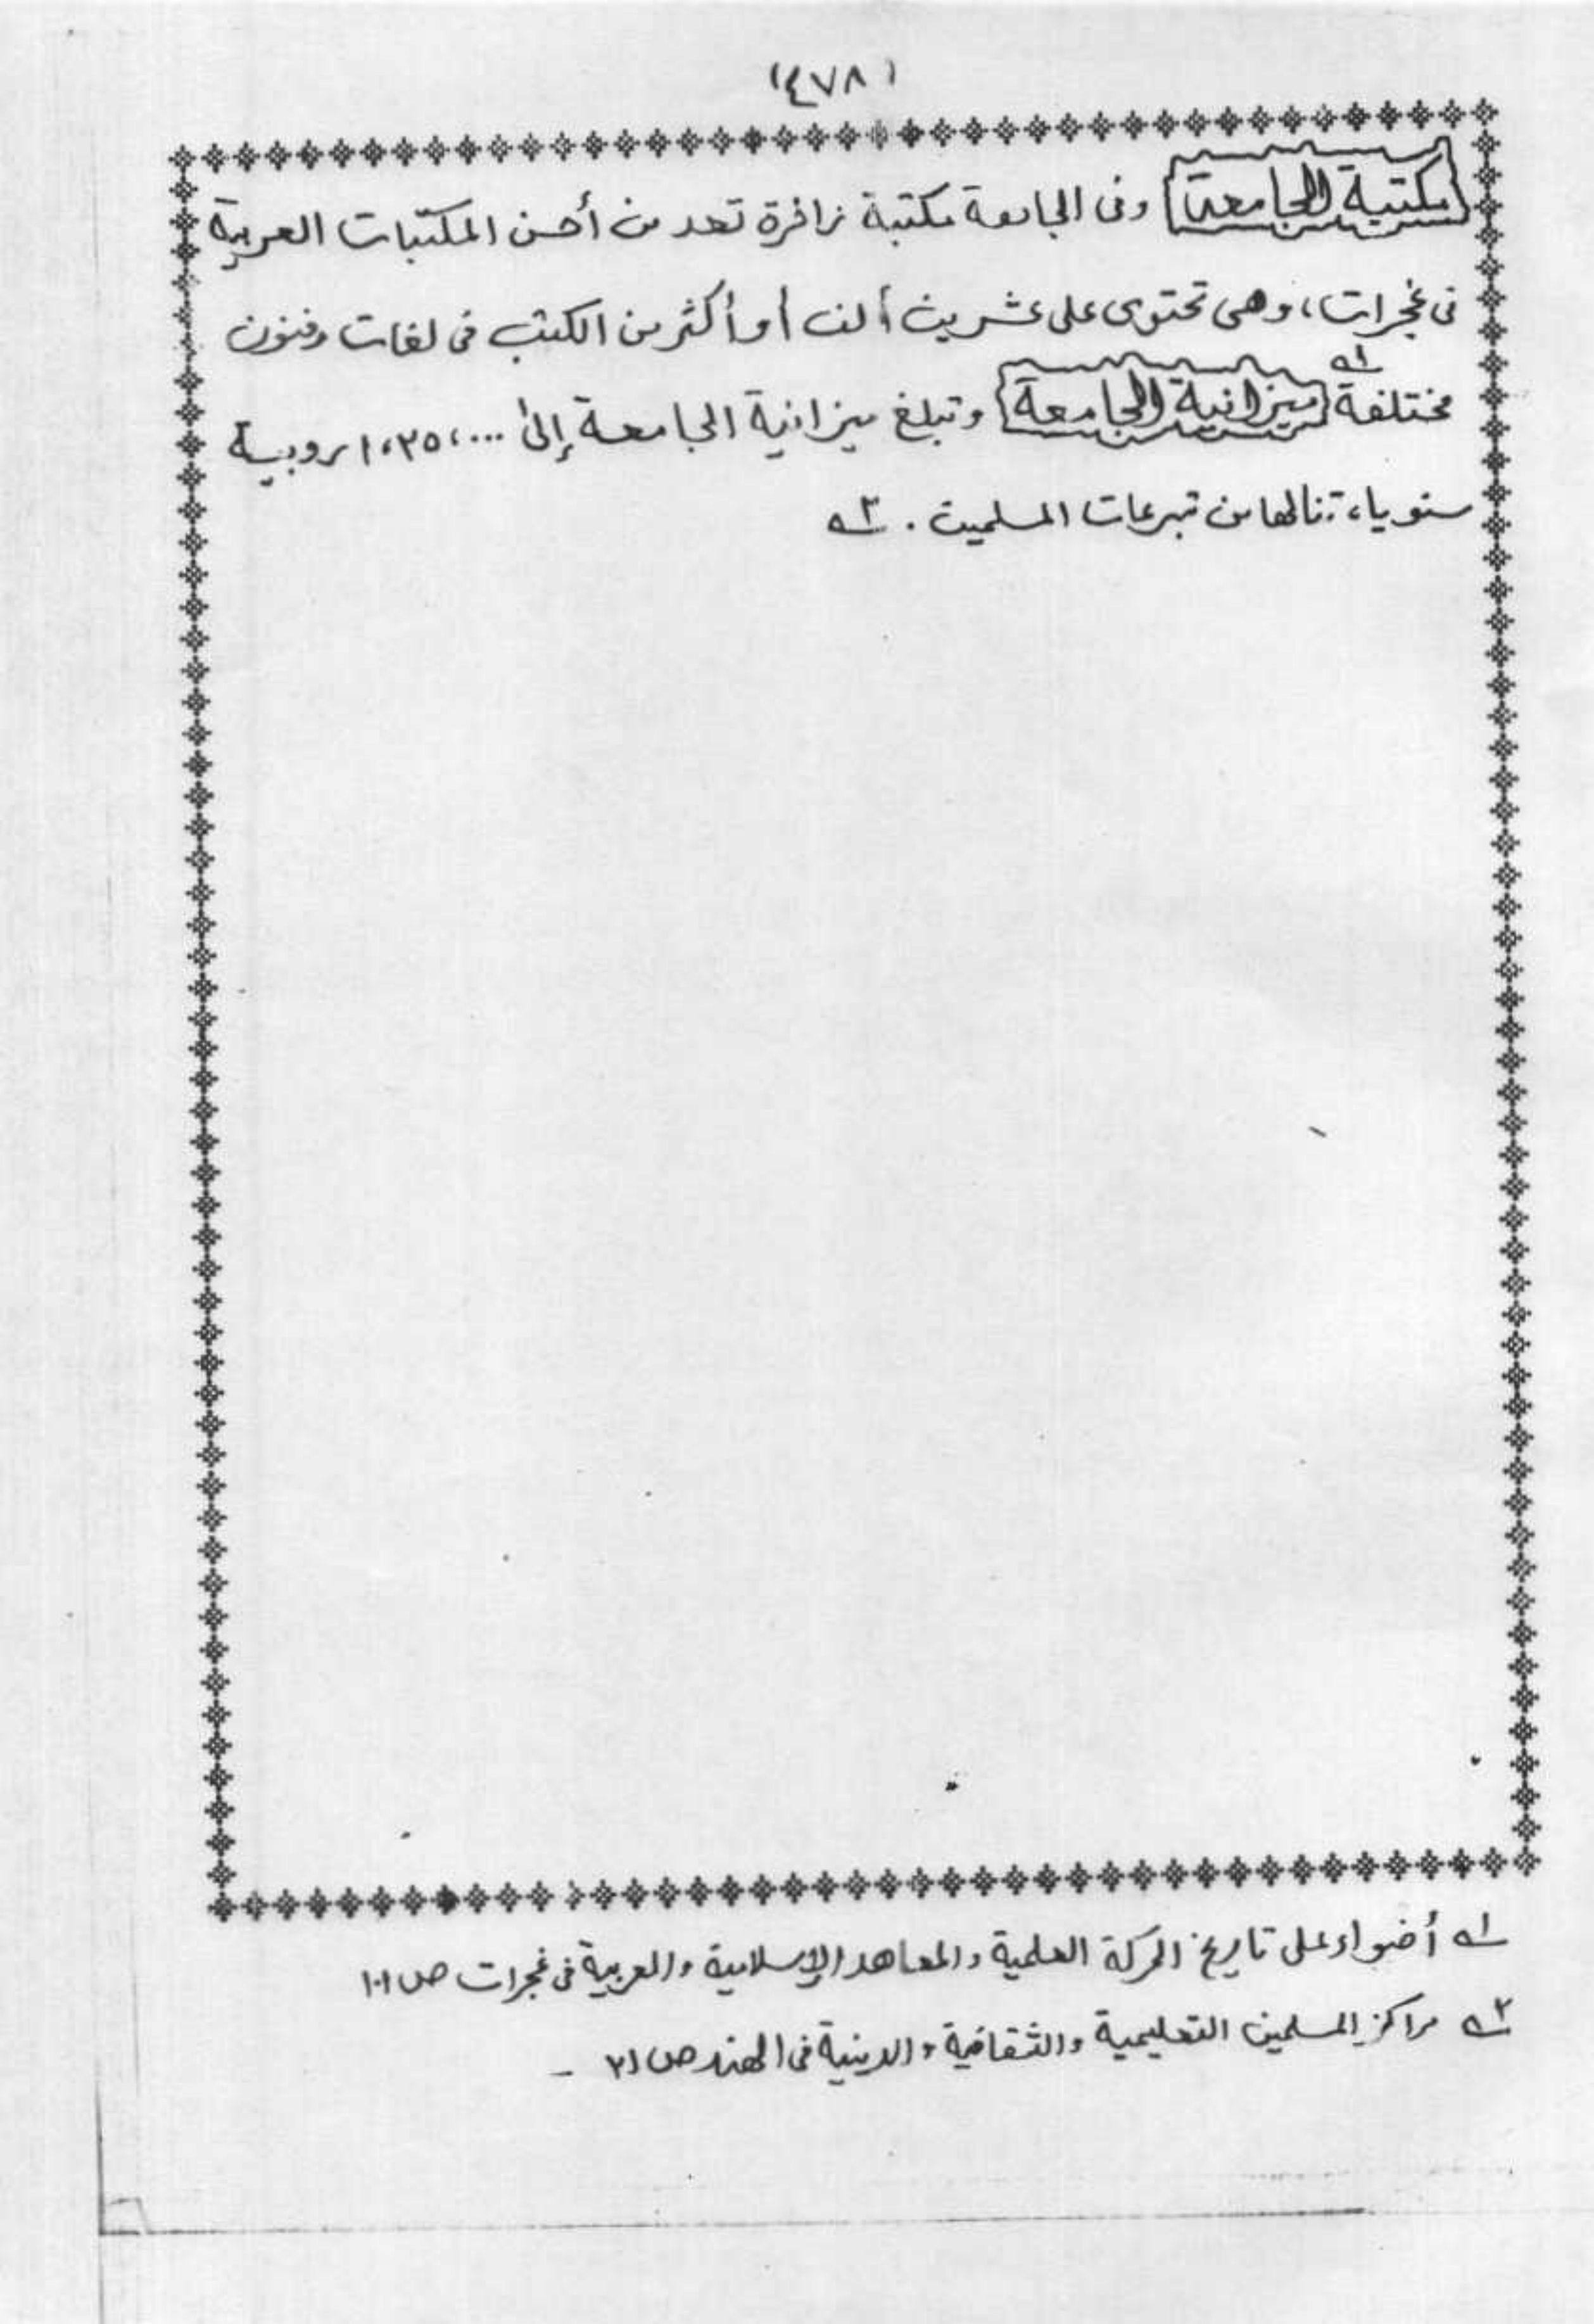 (٤٧٨)
مكتبة الجامعة وفى الجامعة مكتبة زاخرة تعد من أحسن المكتبات العربية
فى غجرات، وهى تحتوى على عشرين ألف أو أكثر من الكتب فى لغات وفنون
مختلفة ١ه ميزانية الجامعة وتبلغ ميزانية الجامعة إلى ١،٢٥،٠٠٠ روبية
سنويا، تنالها من تبرعات المسلمين. ٢ه
١ه أضواء على تاريخ الحركة العلمية والمعاهد الإسلامية والعربية فى غجرات ص ١٠١
٢ه مراكز المسلمين التعليمية والثقافية والدينية فى الهند ص ٢١ -